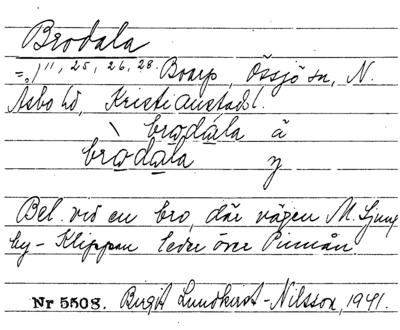 Brodala
=, 1", 25, 26, 28. Boarp, Össjö sn, N.
Åsbo hd, Kristianstads l.
\ brodala ä
brodala y
Bel. vid en bro, där vägen M. Ljung
by-Klippan leder över Pinnån.
Nr 5508. Birgit Lundkvist-Nilsson, 1941.